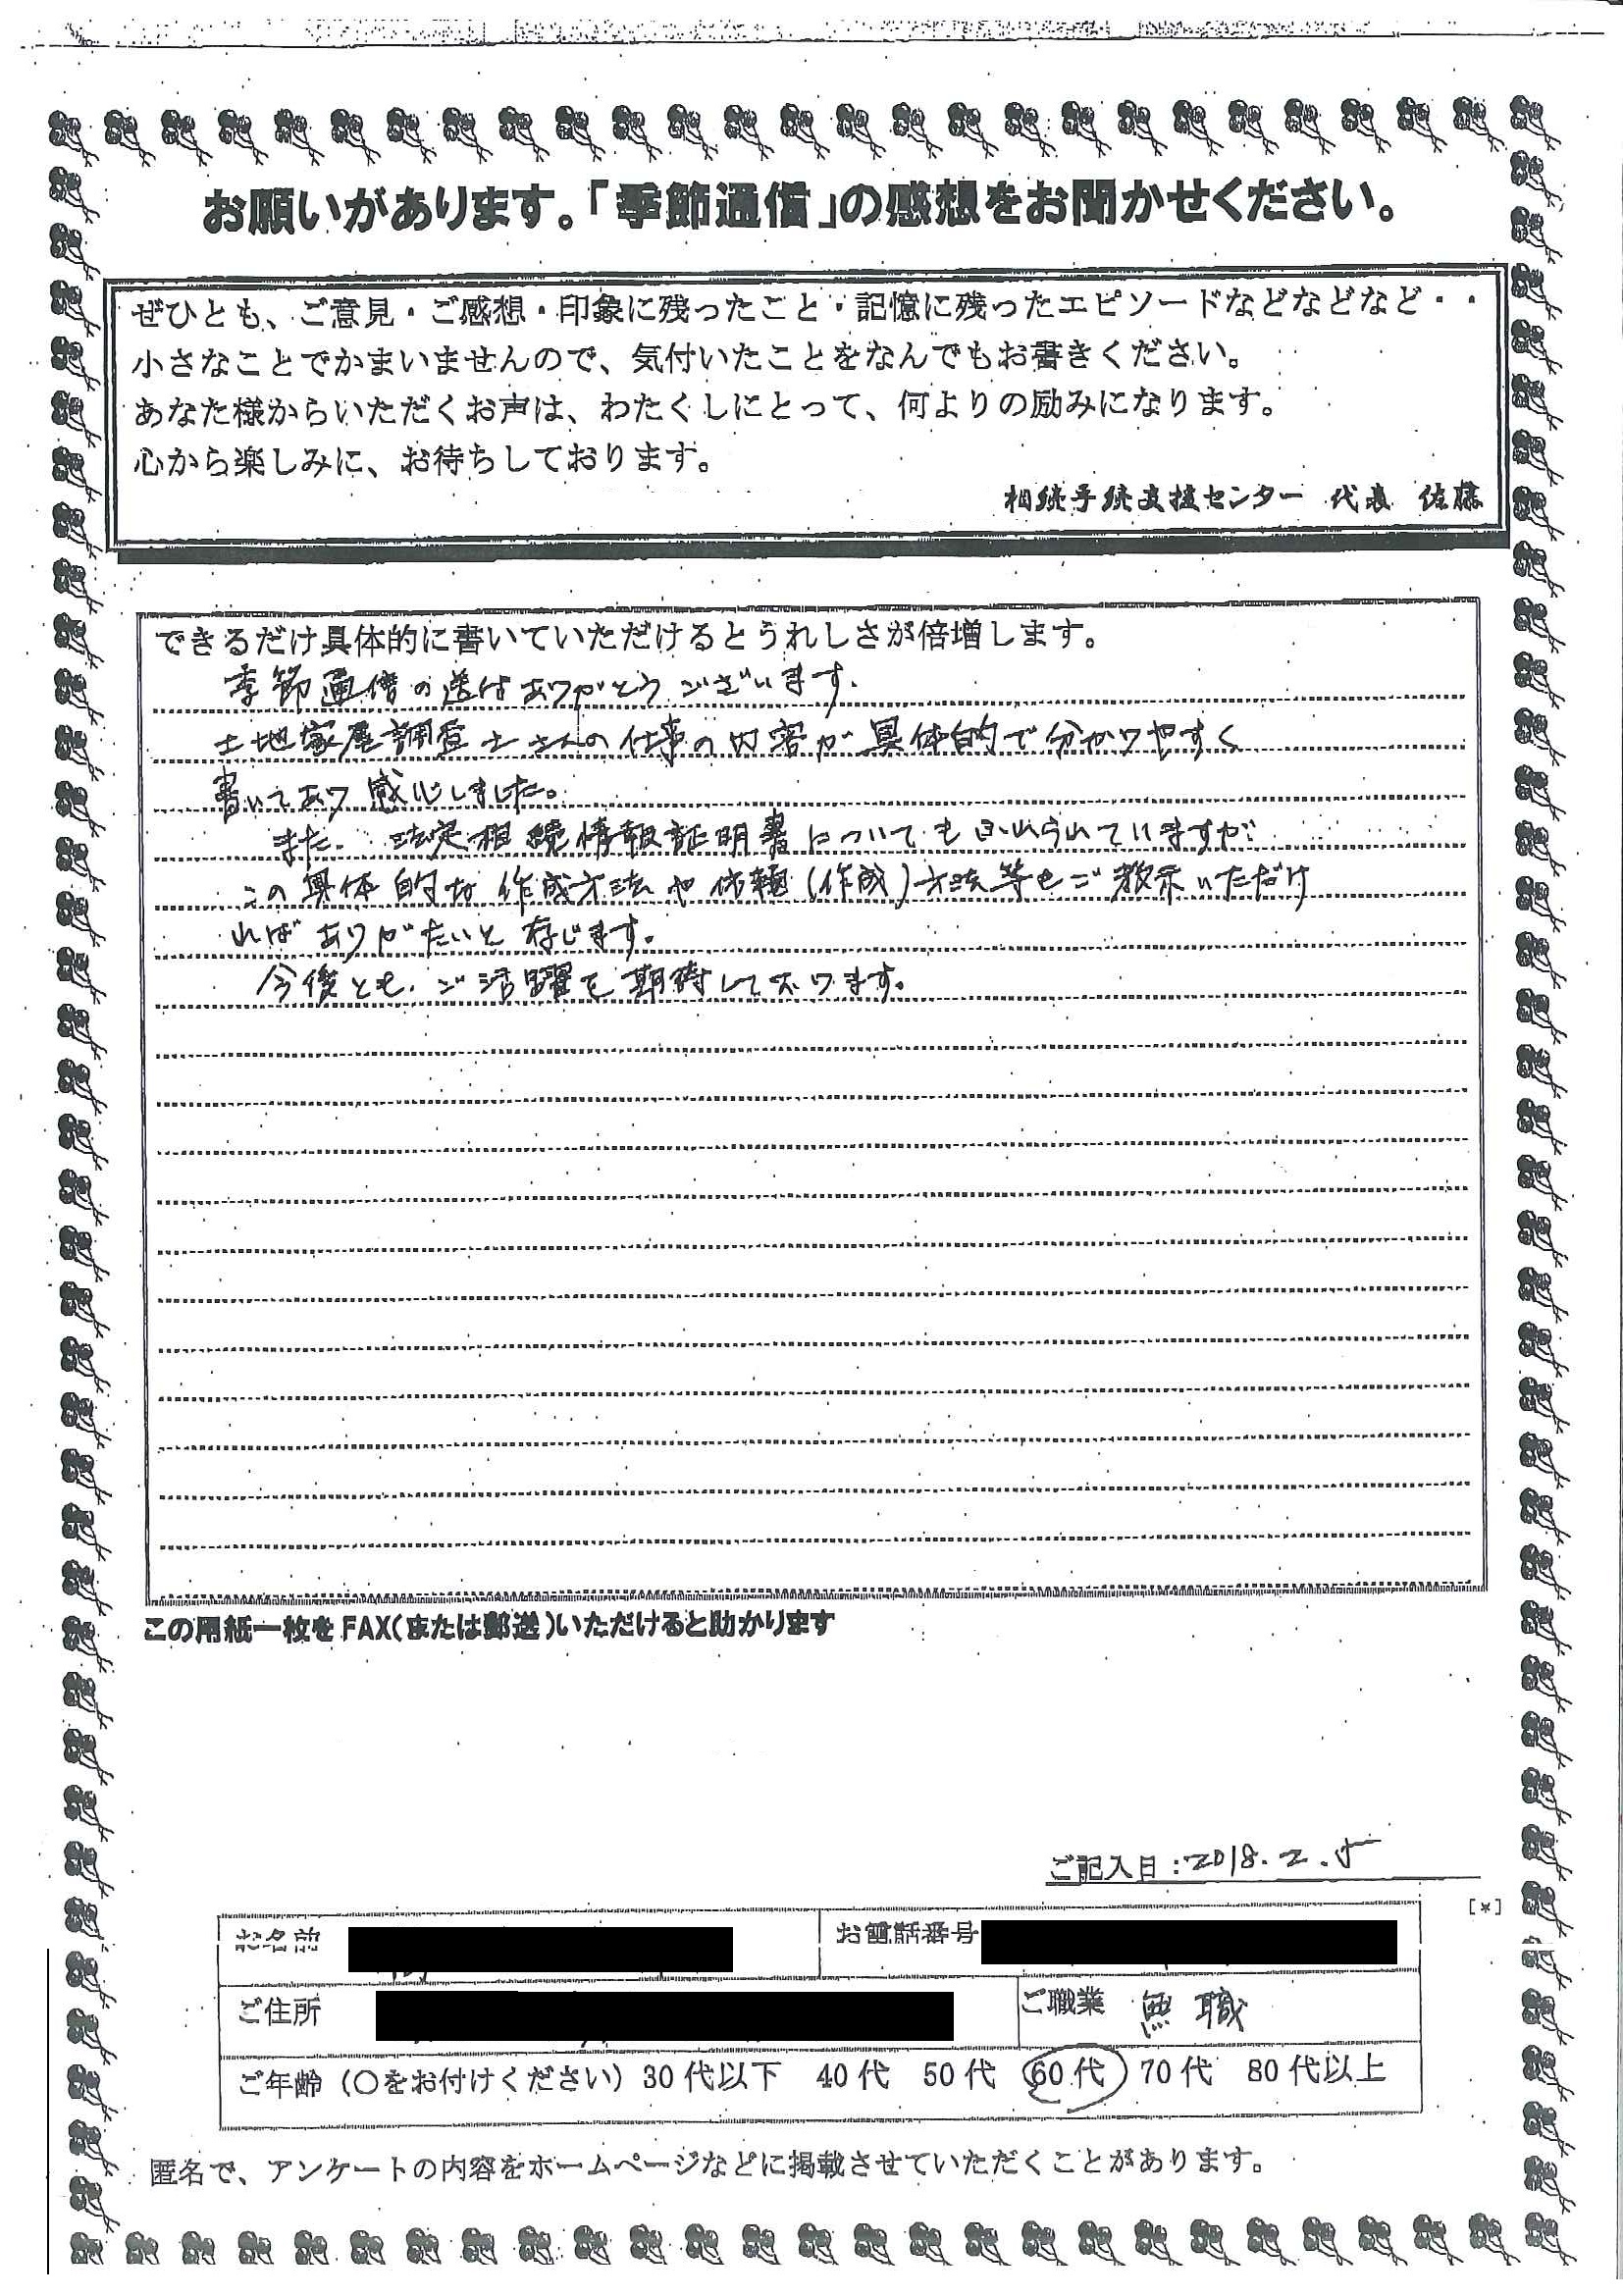 お願いがあります。「季節通信」の感想をお聞かせください。
ぜひとも、ご意見・ご感想・印象に残ったこと・記憶に残ったエピソードなどなどなど・・
小さなことでかまいませんので、気付いたことをなんでもお書きください。
あなた様からいただくお声は、わたくしにとって、何よりの励みになります。
心から楽しみに、お待ちしております。
相続手続支援センター 代表 佐藤
できるだけ具体的に書いていただけるとうれしさが倍増します。
季節通信の送付ありがとうございます。
土地家屋調査士さんの仕事の内容が具体的で分かりやすく
書いてあり感心しました。
また、法定相続情報証明書についても ていますが
この具体的な作成方法や依頼(作成)方法等をご教示いただけ
ればありがたいと存じます。
今後とも、ご活躍を期待しております。
この用紙一枚をFAX(または郵送)いただけると助かります
ご記入日:2018.2.5
[*]
お名前 お電話番号
ご住所 ご職業 無職
ご年齢(○をお付けください)30代以下 40代 50代 60代 70代 80代以上
匿名で、アンケートの内容をホームページなどに掲載させていただくことがあります。